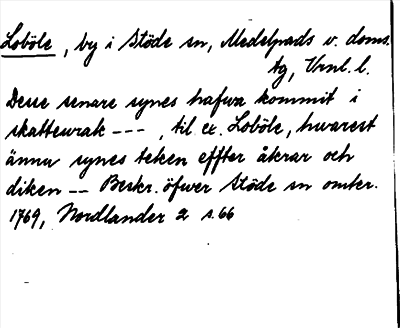 Loböle, by i Stöde sn, Medelpads v. doms.
tg, Vrnl. l.
Desse senare synes hafwa kommit i
skattewrak --- , til ex. Loböle, hwarest
ännu synes teken effter åkrar och
diken -- Beskr. öfwer Stöde sn omkr.
1769, Nordlander 2 s. 66